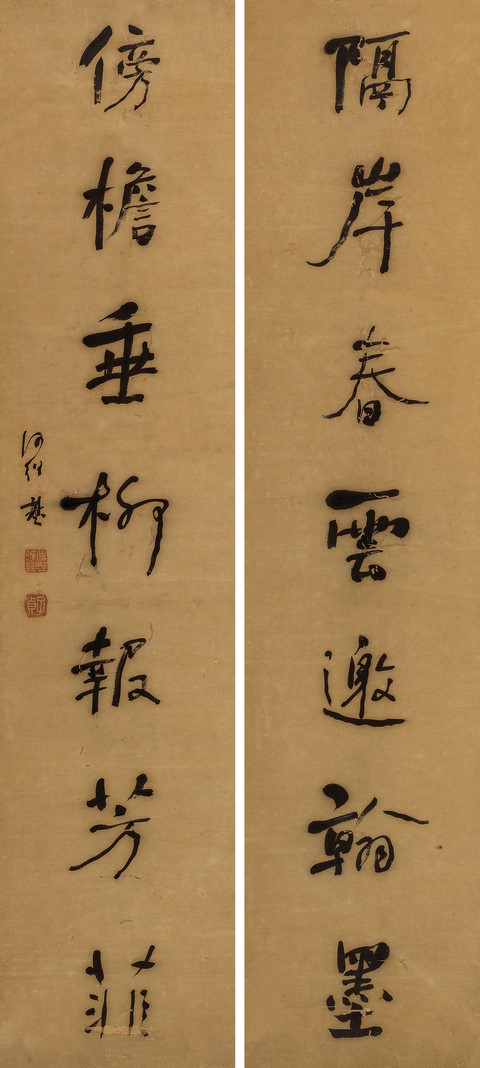 隔岸春雲邀翰墨
傍檐垂柳報芳菲
何紹基